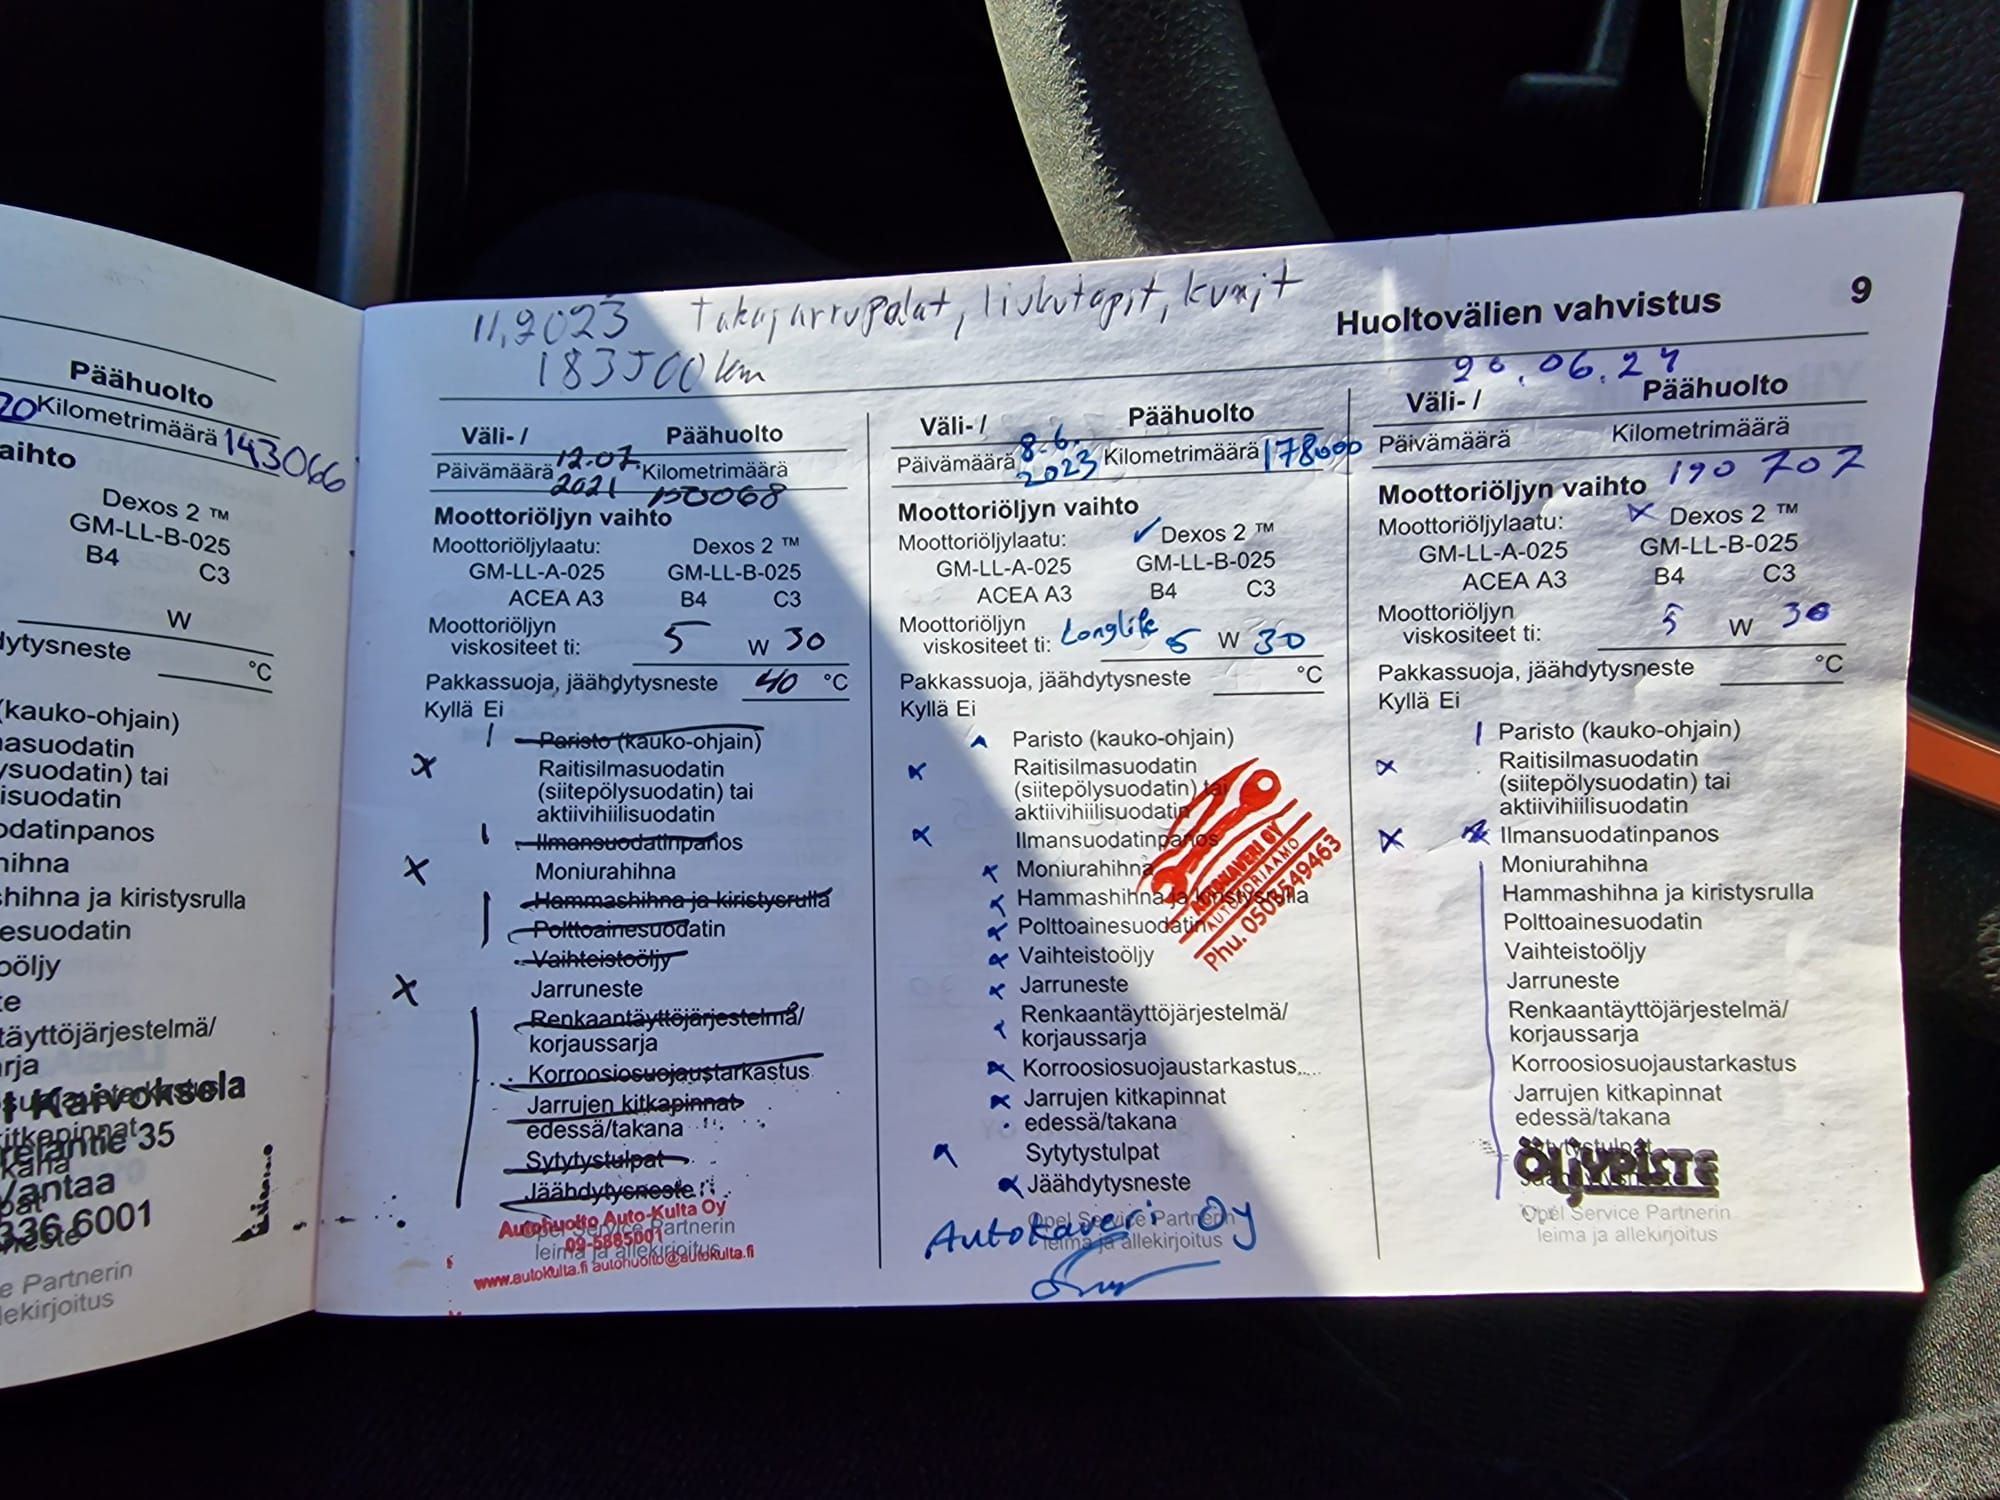 Päähuolto
20 Kilometrimäärä 143066
aihto
Dexos 2 ™
GM-LL-B-025
B4 C3
W
dytysneste °C
(kauko-ohjain)
asuodatin
ysuodatin) tai
isuodatin
odatinpanos
hihna
shihna ja kiristysrulla
esuodatin
oöljy
te
täyttöjärjestelmä/
rja
Kaivoksela
itkapinnat
35
kana
Vantaa
pat
336 6001
neste
e Partnerin
lekirjoitus
11,2023 Takajarrupalat, liukutapit, kumit
183500 km
Huoltovälien vahvistus 9
Väli- / Päähuolto
Päivämäärä 12.07. Kilometrimäärä
2021 150068
Moottoriöljyn vaihto
Moottoriöljylaatu: Dexos 2 ™
GM-LL-A-025 GM-LL-B-025
ACEA A3 B4 C3
Moottoriöljyn
viskositeet ti: 5 W 30
Pakkassuoja, jäähdytysneste 40 °C
Kyllä Ei
Paristo (kauko-ohjain)
x Raitisilmasuodatin
(siitepölysuodatin) tai
aktiivihiilisuodatin
Ilmansuodatinpanos
x Moniurahihna
Hammashihna ja kiristysrulla
Polttoainesuodatin
Vaihteistoöljy
x Jarruneste
Renkaantäyttöjärjestelmä/
korjaussarja
Korroosiosuojaustarkastus
Jarrujen kitkapinnat
edessä/takana
Sytytystulpat
Jäähdytysneste
Autohuolto Auto-Kulta Oy
09-5885001
Opel Service Partnerin
leima ja allekirjoitus
www.autokulta.fi autohuolto@autokulta.fi
Väli- / Päähuolto
Päivämäärä 8.6. Kilometrimäärä 178000
2023
Moottoriöljyn vaihto
Moottoriöljylaatu: ✓ Dexos 2 ™
GM-LL-A-025 GM-LL-B-025
ACEA A3 B4 C3
Moottoriöljyn
viskositeet ti: Longlife 5 W 30
Pakkassuoja, jäähdytysneste °C
Kyllä Ei
Paristo (kauko-ohjain)
x Raitisilmasuodatin
(siitepölysuodatin) tai
aktiivihiilisuodatin
x Ilmansuodatinpanos
x Moniurahihna
x Hammashihna ja kiristysrulla
x Polttoainesuodatin
x Vaihteistoöljy
x Jarruneste
x Renkaantäyttöjärjestelmä/
korjaussarja
x Korroosiosuojaustarkastus
x Jarrujen kitkapinnat
edessä/takana
x Sytytystulpat
x Jäähdytysneste
AUTOKAVERI OY
AUTOKORJAAMO
Phu. 0503549463
Opel Service Partnerin
leima ja allekirjoitus
Autokaveri Oy
20.06.24
Väli- / Päähuolto
Päivämäärä Kilometrimäärä
190 707
Moottoriöljyn vaihto
Moottoriöljylaatu: x Dexos 2 ™
GM-LL-A-025 GM-LL-B-025
ACEA A3 B4 C3
Moottoriöljyn
viskositeet ti: 5 W 30
Pakkassuoja, jäähdytysneste °C
Kyllä Ei
Paristo (kauko-ohjain)
x Raitisilmasuodatin
(siitepölysuodatin) tai
aktiivihiilisuodatin
x Ilmansuodatinpanos
Moniurahihna
Hammashihna ja kiristysrulla
Polttoainesuodatin
Vaihteistoöljy
Jarruneste
Renkaantäyttöjärjestelmä/
korjaussarja
Korroosiosuojaustarkastus
Jarrujen kitkapinnat
edessä/takana
Sytytystulpat
ÖLJYPISTE
Opel Service Partnerin
leima ja allekirjoitus